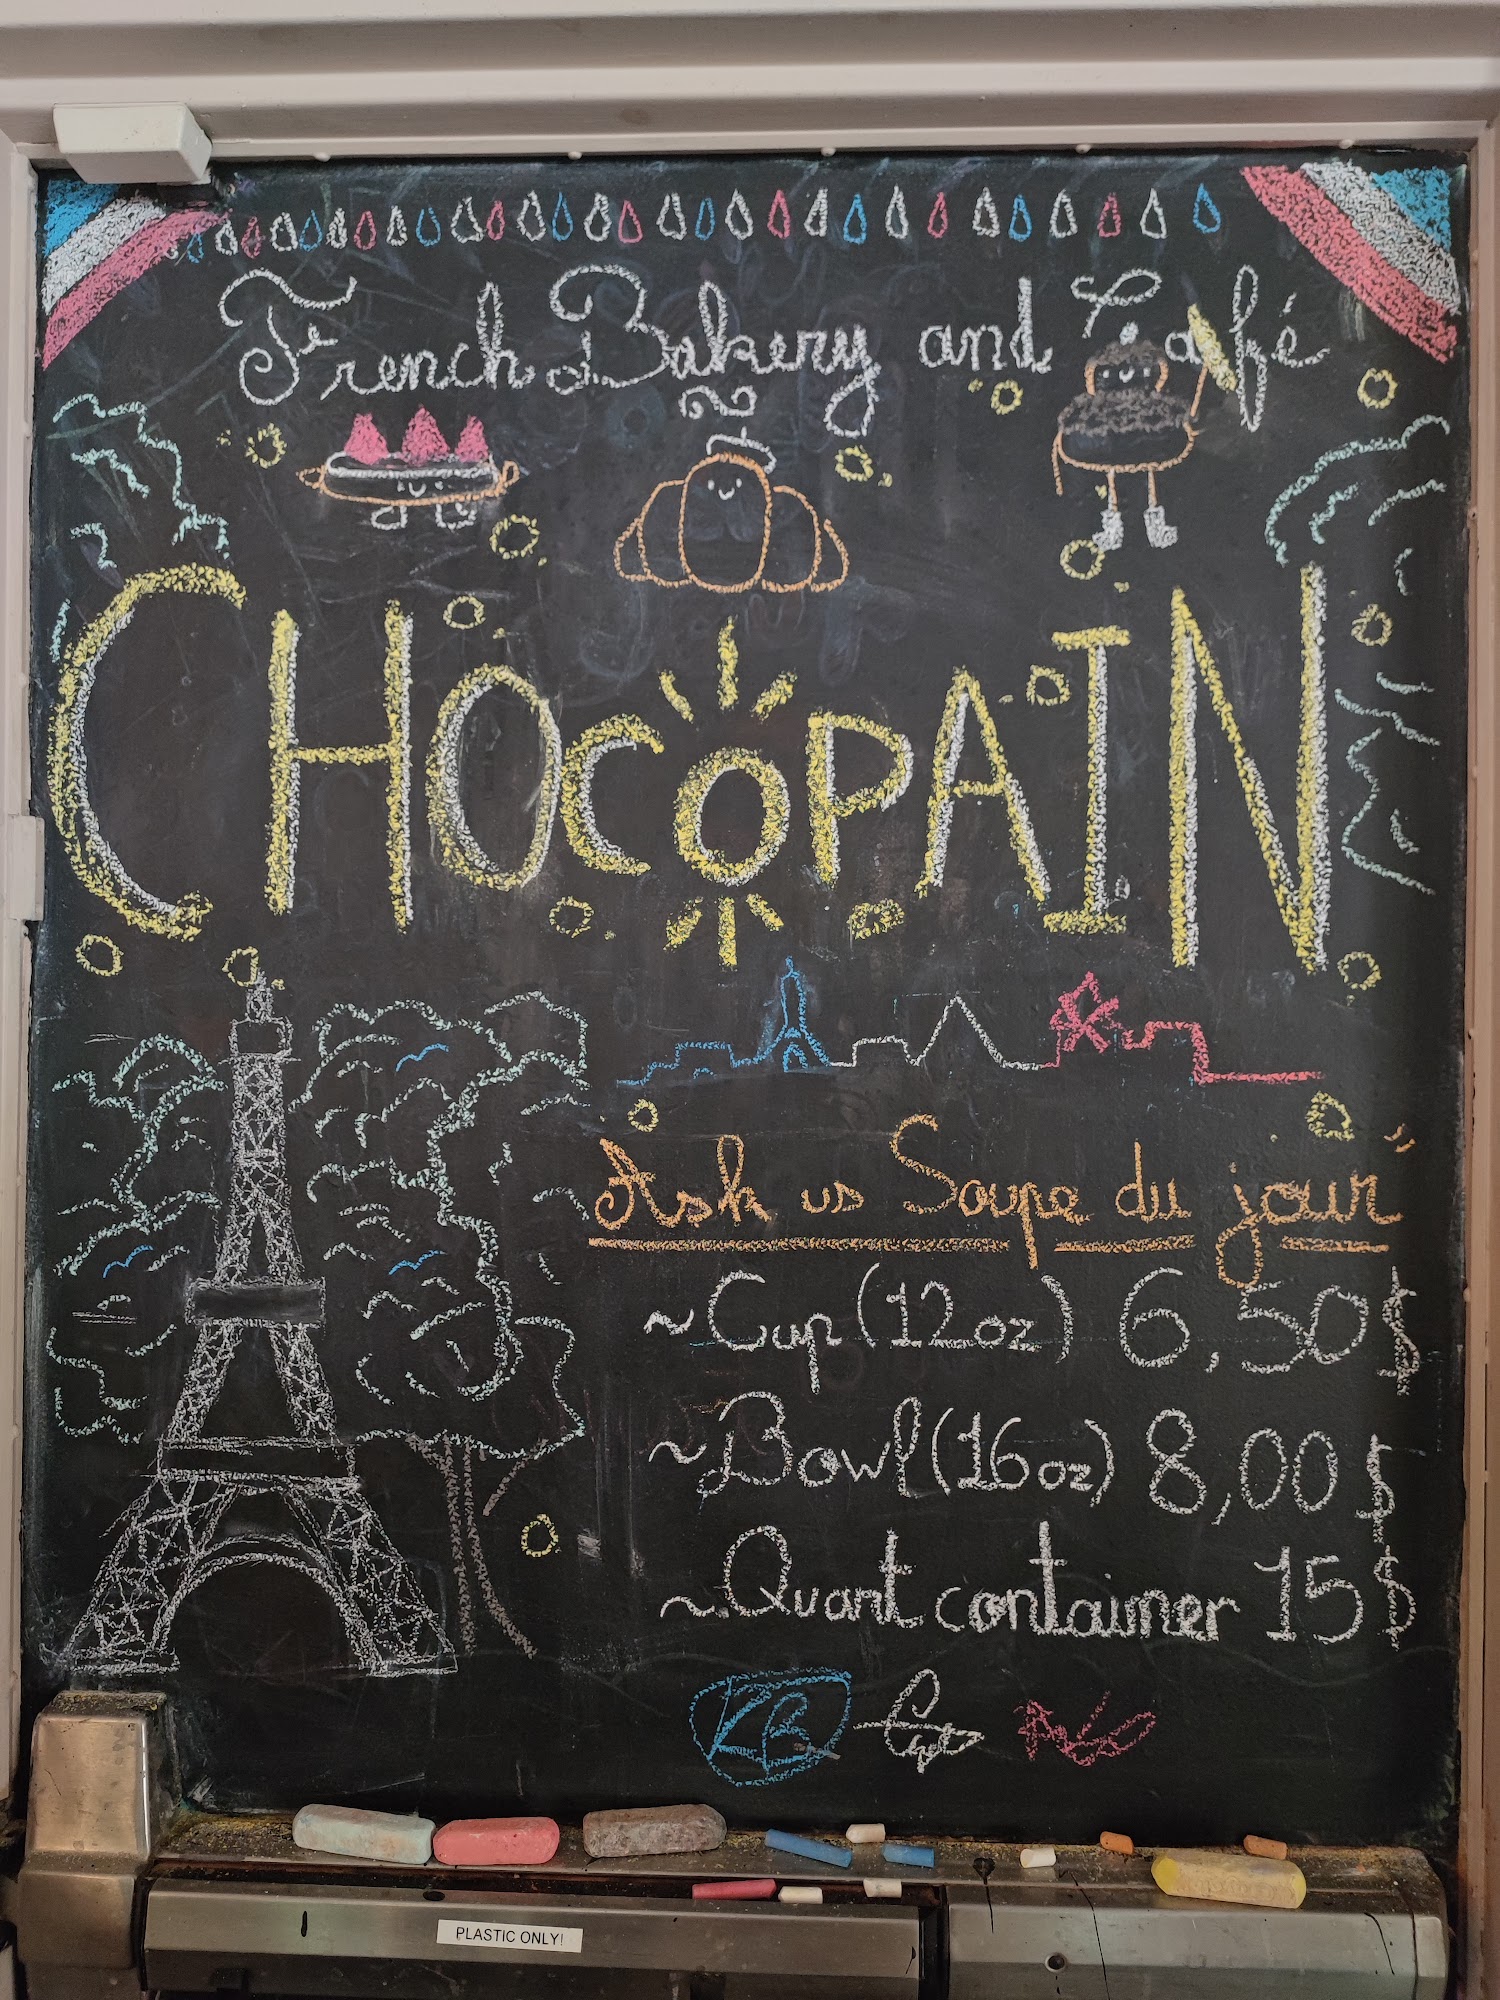 French Bakery and Café
CHOCOPAIN
Ask us Soupe du jour"
~Cup (12oz) 6,50$
~Bowl (16oz) 8,00$
~Quart container 15$
PLASTIC ONLY!